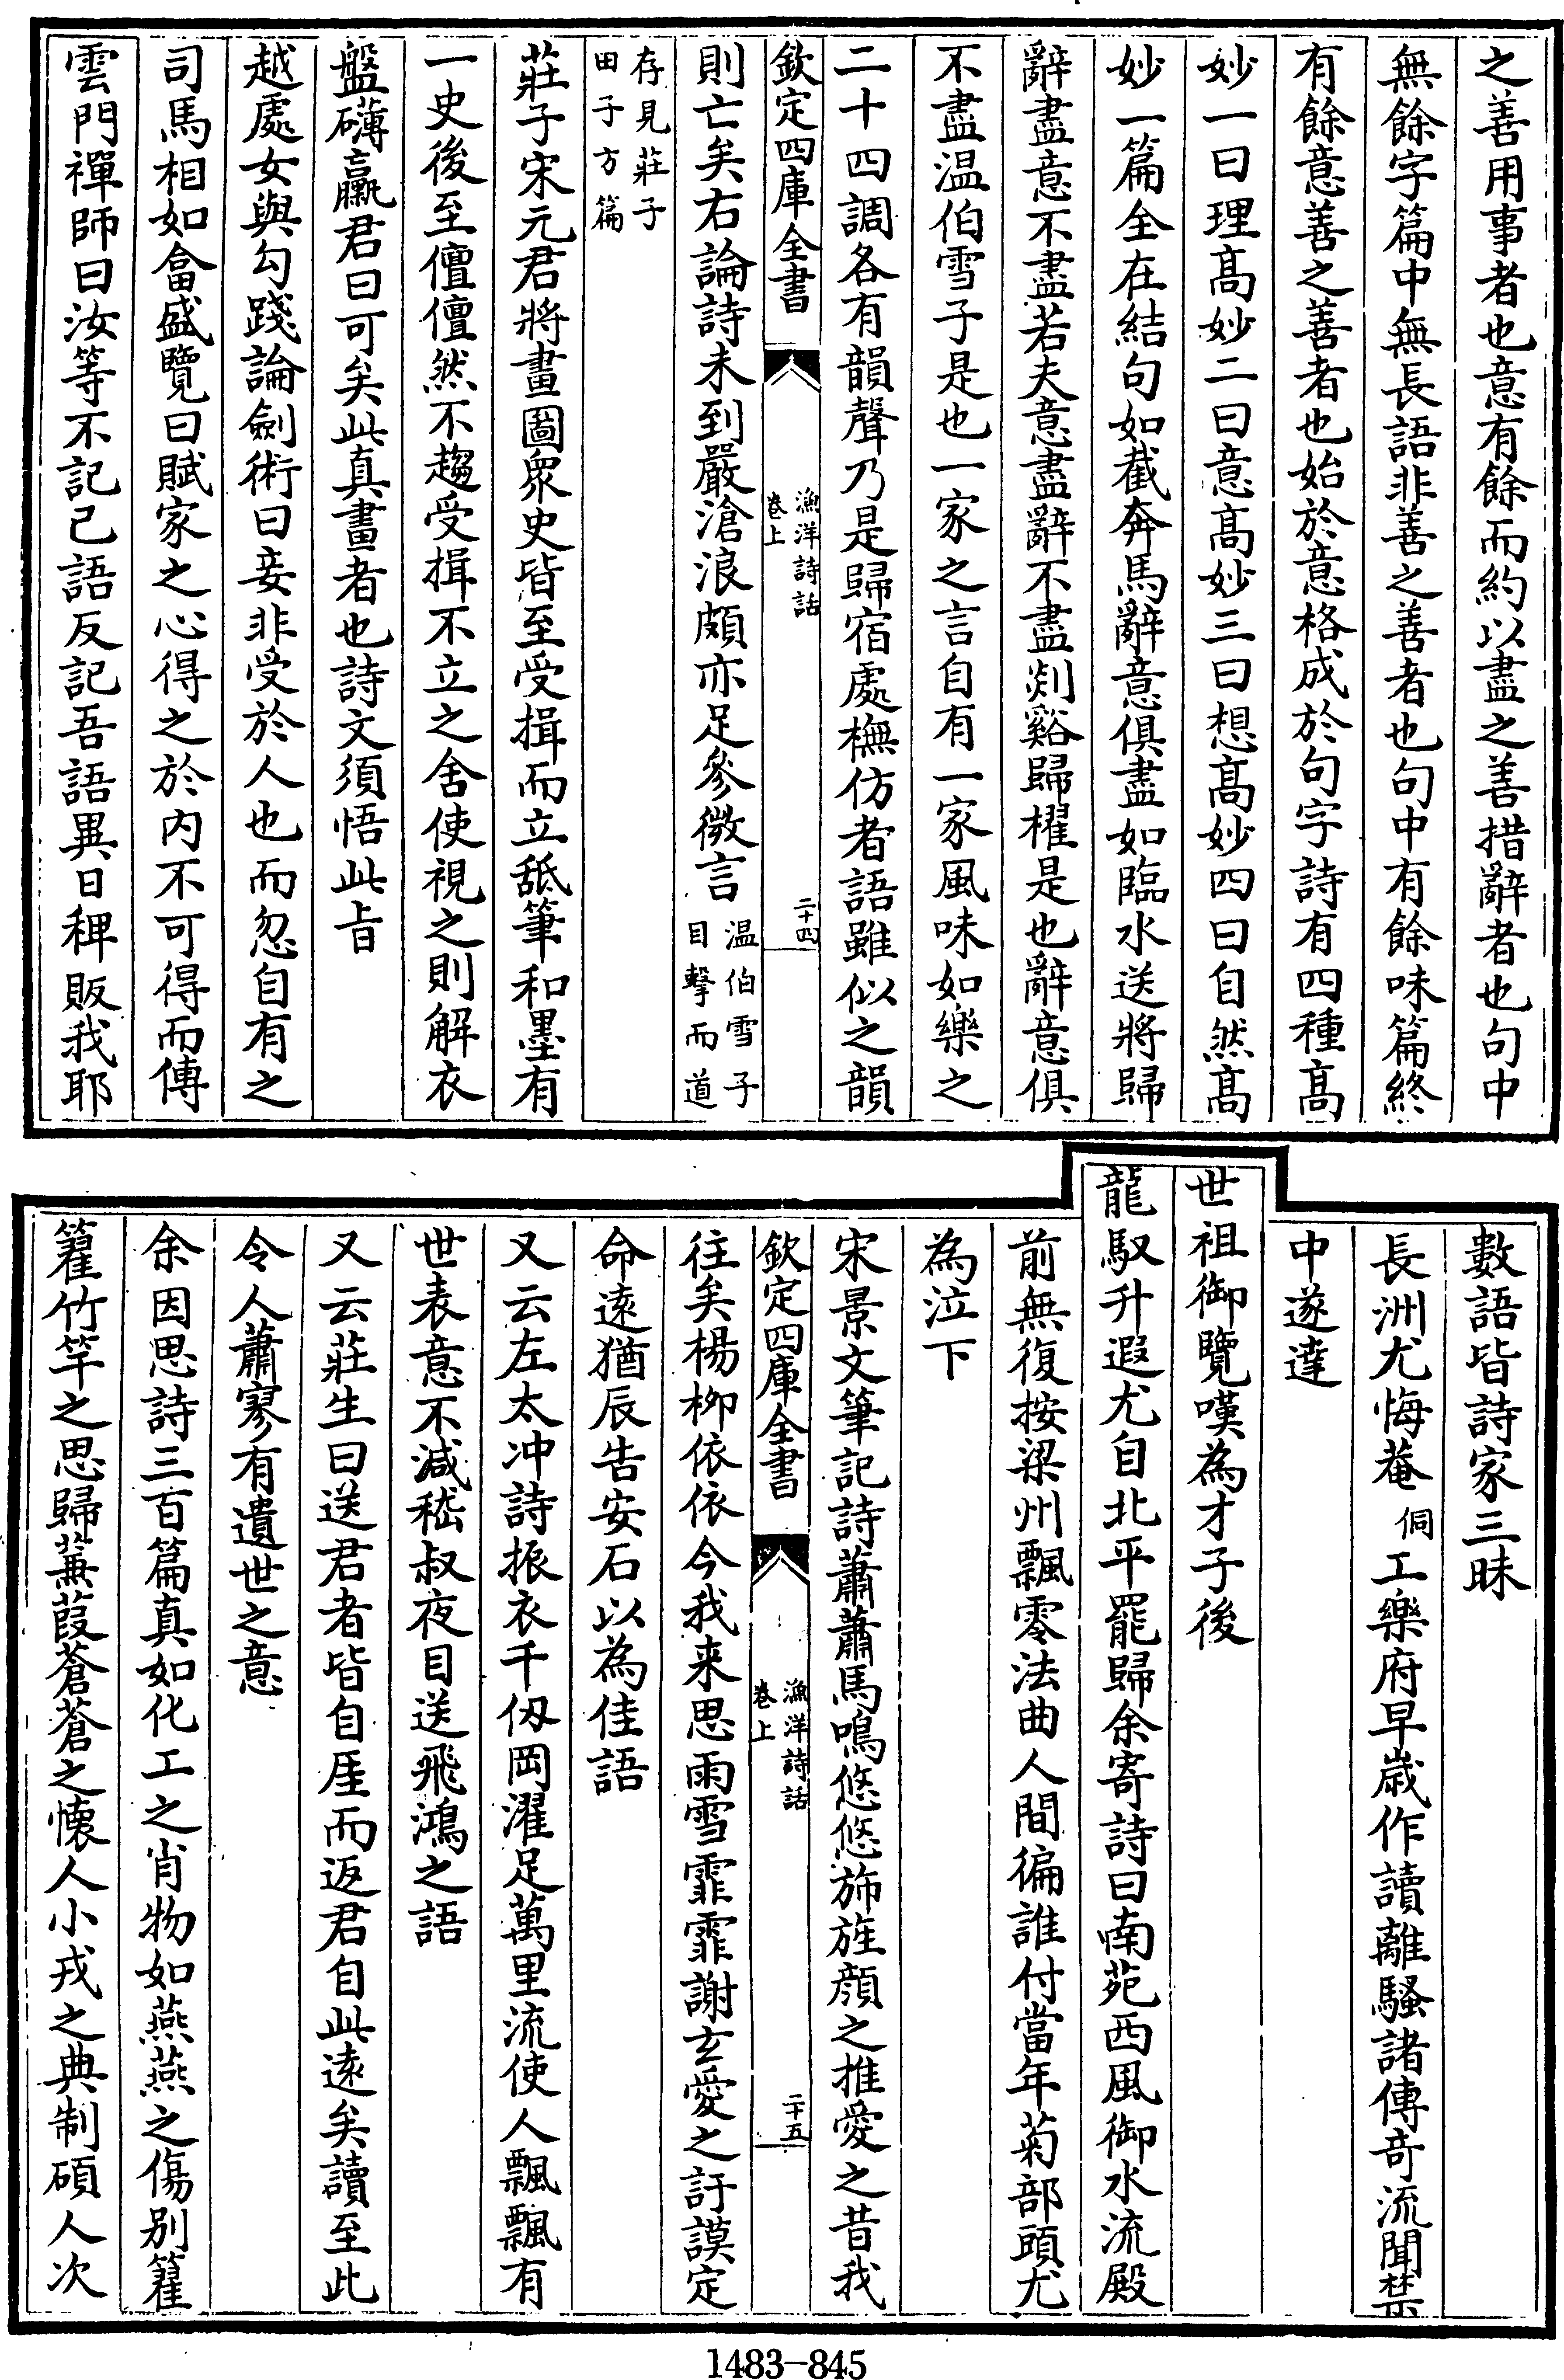 之善用事者也意有餘而約以盡之善措辭者也句中
無餘字篇中無長語非善之善者也句中有餘味篇終
有餘意善之善者也始於意格成於句字詩有四種髙
妙一曰理髙妙二曰意髙妙三曰想髙妙四曰自然髙
妙一篇全在結句如截奔馬辭意俱盡如臨水送將歸
辭盡意不盡若夫意盡辭不盡剡谿歸櫂是也辭意俱
不盡温伯雪子是也一家之言自有一家風味如樂之
二十四調各有韻聲乃是歸宿處橅仿者語雖似之韻
欽定四庫全書
漁洋詩話
卷上
二十四
則亡矣右論詩未到嚴滄浪頗亦足參微言
温伯雪子
目擊而道
存見莊子
田子方篇
莊子宋元君將畫圖衆史皆至受揖而立舐筆和墨有
一史後至儃儃然不趨受揖不立之舍使視之則解衣
盤礴臝君曰可矣此真畫者也詩文須悟此㫖
越處女與勾踐論劍術曰妾非受於人也而忽自有之
司馬相如畣盛覽曰賦家之心得之於内不可得而傳
雲門禪師曰汝等不記己語反記吾語異日稗販我耶
數語皆詩家三昧
長洲尤悔菴
侗
工樂府早歳作讀離騷諸傳奇流聞禁
中遂達
世祖御覽嘆為才子後
龍馭升遐尤自北平罷歸余寄詩曰南苑西風御水流殿
前無復按梁州飄零法曲人間徧誰付當年菊部頭尤
為泣下
宋景文筆記詩蕭蕭馬鳴悠悠斾旌顔之推愛之昔我
欽定四庫全書
漁洋詩話
卷上
二十五
往矣楊柳依依今我来思雨雪霏霏謝玄愛之訏謨定
命逺猶辰告安石以為佳語
又云左太冲詩振衣千仭岡濯足萬里流使人飄飄有
世表意不減嵇叔夜目送飛鴻之語
又云莊生曰送君者皆自厓而返君自此逺矣讀至此
令人蕭寥有遺世之意
余因思詩三百篇真如化工之肖物如燕燕之傷别籊
籊竹竿之思歸蒹葭蒼蒼之懐人小戎之典制碩人次
1483-845